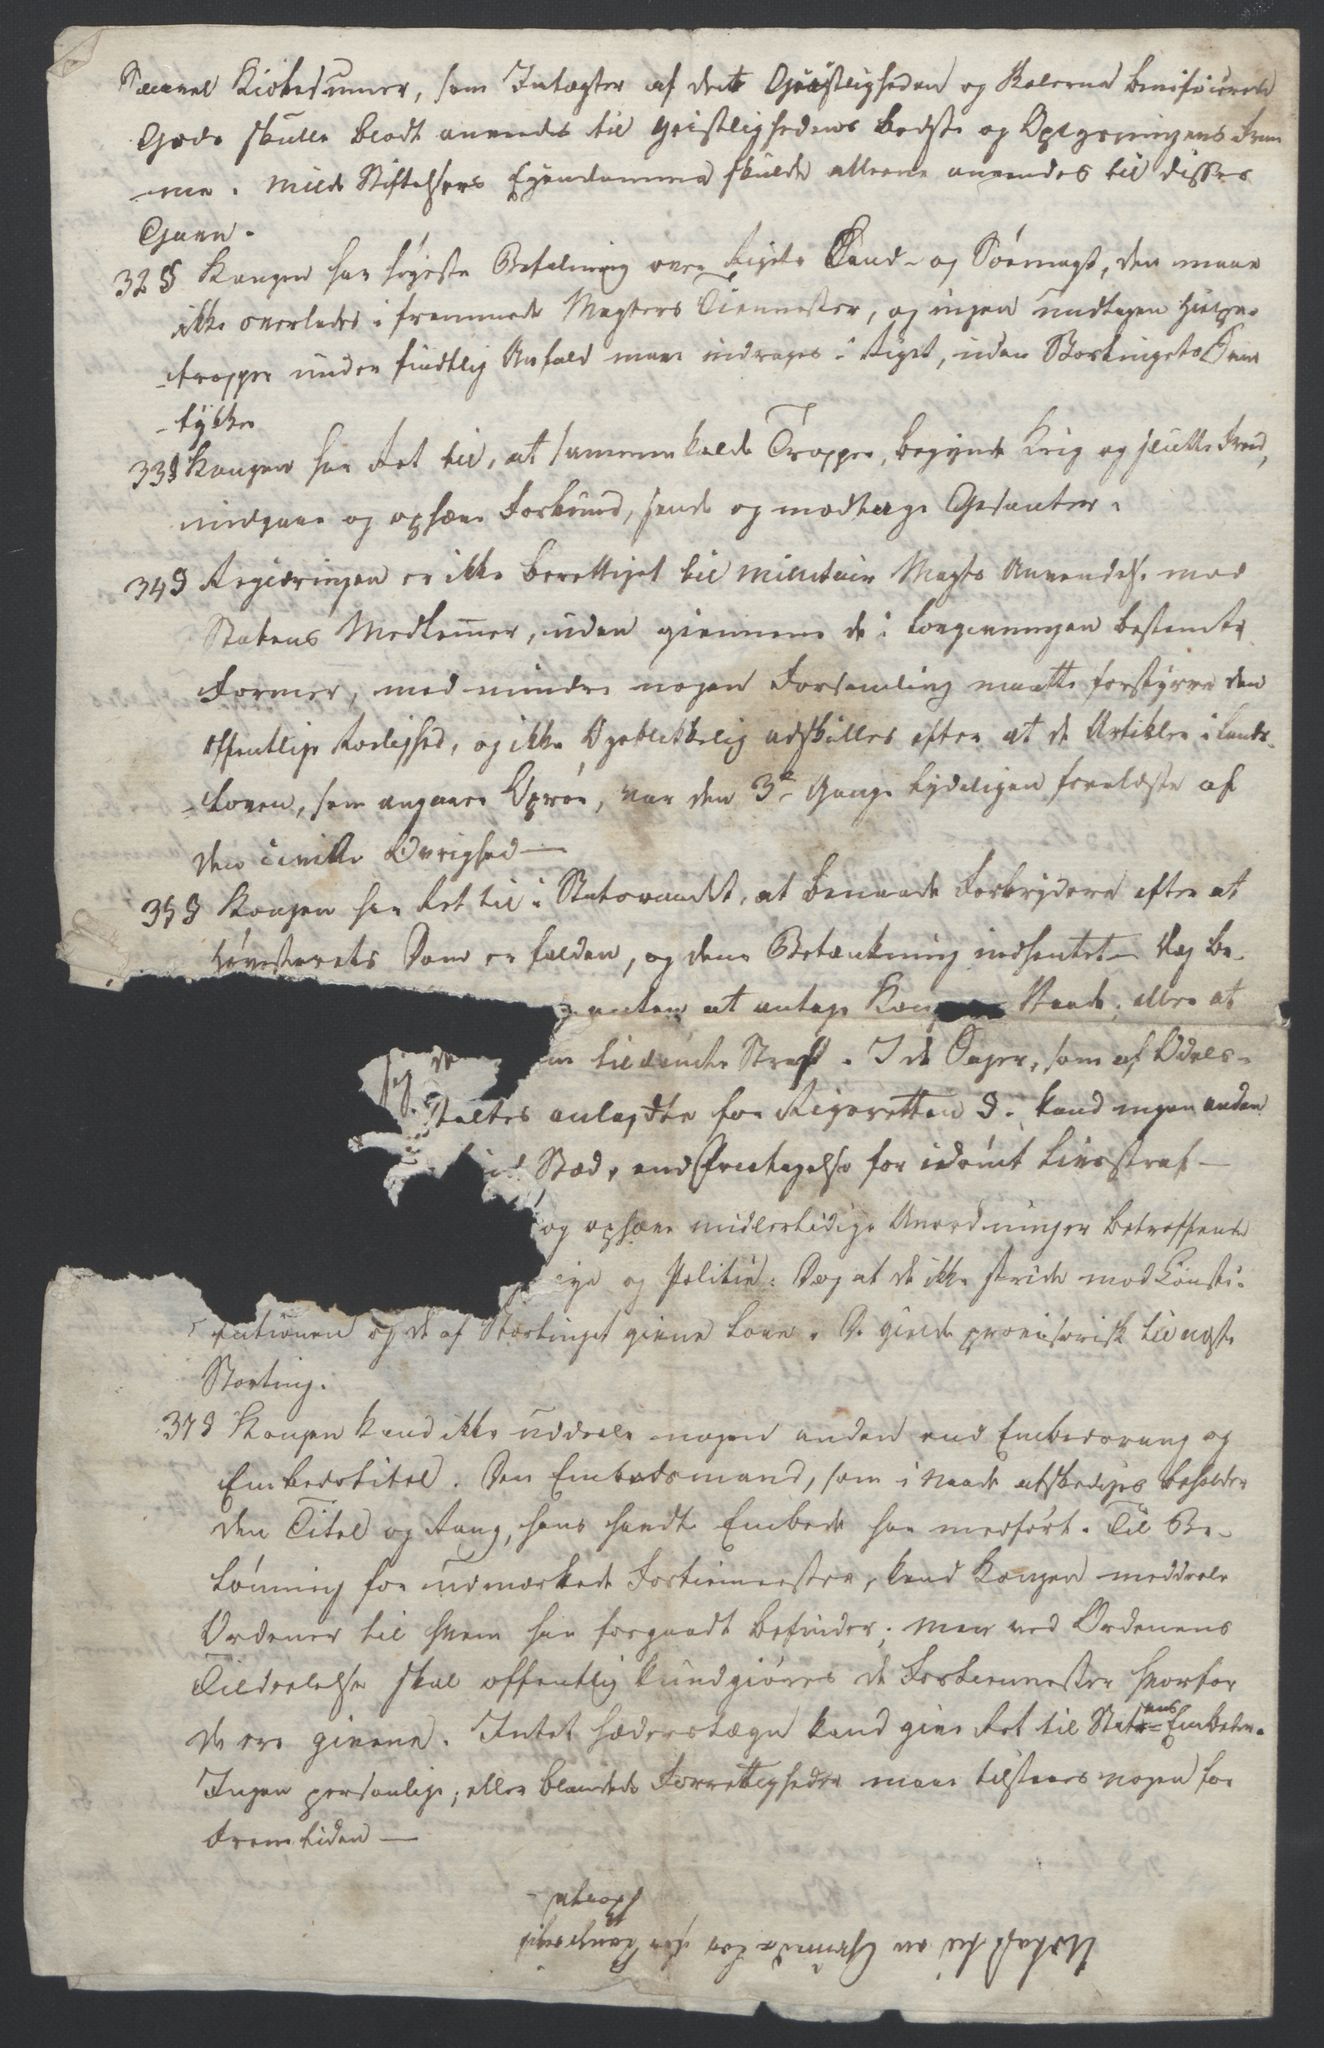 saavel Kiøbesummer, som Indtægter af det Geistligheden og Skolerne beneficerede
Gods skulle blodt anvendes til Geistlighedens bedste og Oplysningens Frem
-me. Milde Stiftelsers Eyendomme skulde alleene anvendes til disses
Gavn.
32 § Kongen har høyeste Befalning over Rigets Land- og Søemagt, den maae
ikke overlades i fremmede Magters Tienneste, og ingen undtagen Hielpe-
-tropper under fiendtlig Anfald maae inddrages i Riget, uden Stortingets Sam
-tykke
33 § Kongen har Ret til, at sammenkalde Tropper, begynde Krig og slutte Fred,
indgaae og ophæve Forbund, sende og modtage Gesanter.
34 § Regieringen er ikke berettiget til militair Magts Anvendelse mod
Statens Medlemmer, uden giennem de i Lovgivningen bestemte
Former, med mindre nogen Forsamling maatte forstyrre den
offentlige Roelighed, og ikke Øyeblikkelig adskilles efter at de Artikler i Lands-
-Loven, som angaaer Oprør, var den 3de Gange lydeligen forelæste af
den civile Øvrighed —
35 § Kongen har Ret til i Statsraadet, at benaade Forbrydere efter at
Høiesterets Dom er falden, og dens Betænkning indhentet. Dog be-
enten at antage Kongens Naade, eller at
tildømte Straf. I de Sager, som af Odels-
anlagdte for Rigsretten kand ingen anden
Sted, end Fritagelse for idømt Livsstraf —
og ophæve midlertidige Anordninger betreffende
og Politie: Dog at de ikke stride mod Consti-
tutionen og de af Stortinget givne Love. De gielde provisorisk til næste
Storting.
37 § Kongen kand ikke uddeele nogen anden end Embedsrang og
Embedstitel. Den Embedsmand, som i Naade afskediges beholder
den Titel og Rang, hans havdte Embede har medført. Til Be-
lønning for udmærkede Fortiennester, kand Kongen meddeele
Ordener til hvem han forgodt befinder; men ved Ordenens
Tildeelelse skal offentlig kundgiøres de Fortiennester hvorfor
de ere givene. Intet Hæderstegn kand give Ret til Statens Embeder.
Ingen personlige, eller blandede Forrettigheder maae tilstaaes nogen for
Fremtiden —
Udkast til en Grundlov for Kongeriget
Norge